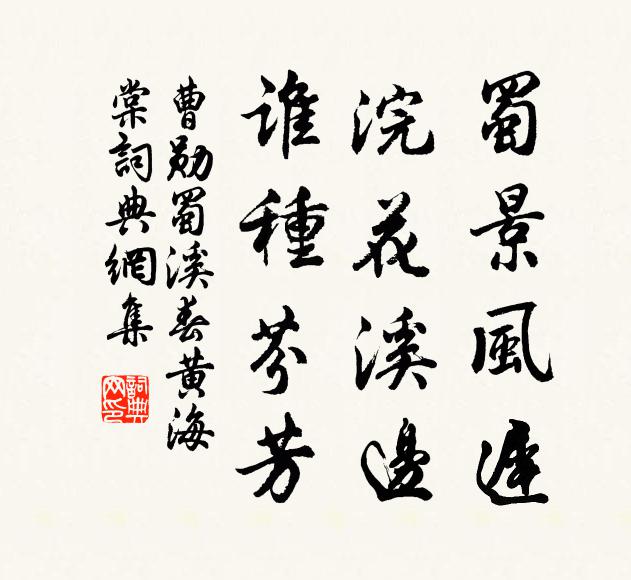 蜀景風遲
浣花溪邊
誰種芬芳
曹勛蜀溪春黃海
棠詞典網集
詞典网印